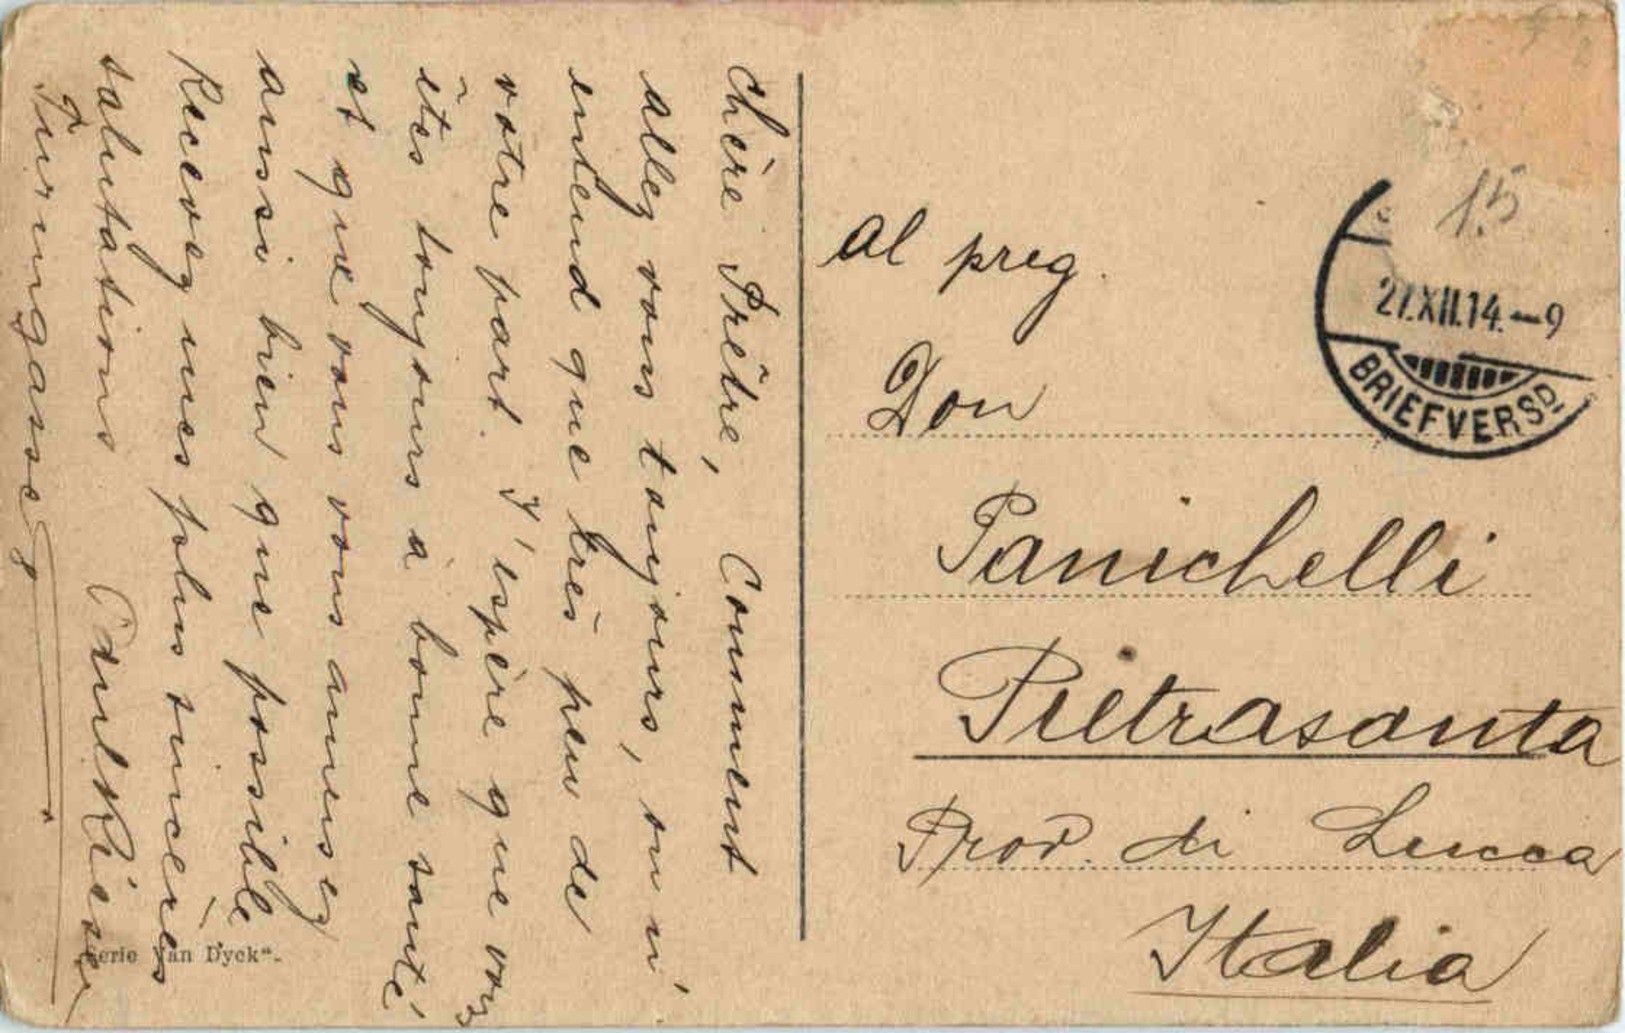 Chère Prêtre, Comment
allez vous toujours, on n'
entend que très peu de
votre part. J'espère que vous
êtes toujours à bonne santé
et que vous vous amusez
aussi bien que possible
Recevez mes plus sincères
salutations Paul Rieser
Turingasse 8
al preg.
Don
Panichelli
Pietrasanta
Prov. di Lucca
Italia
15
27.XII.14.–9
BRIEFVERSD
Serie Van Dyck“.